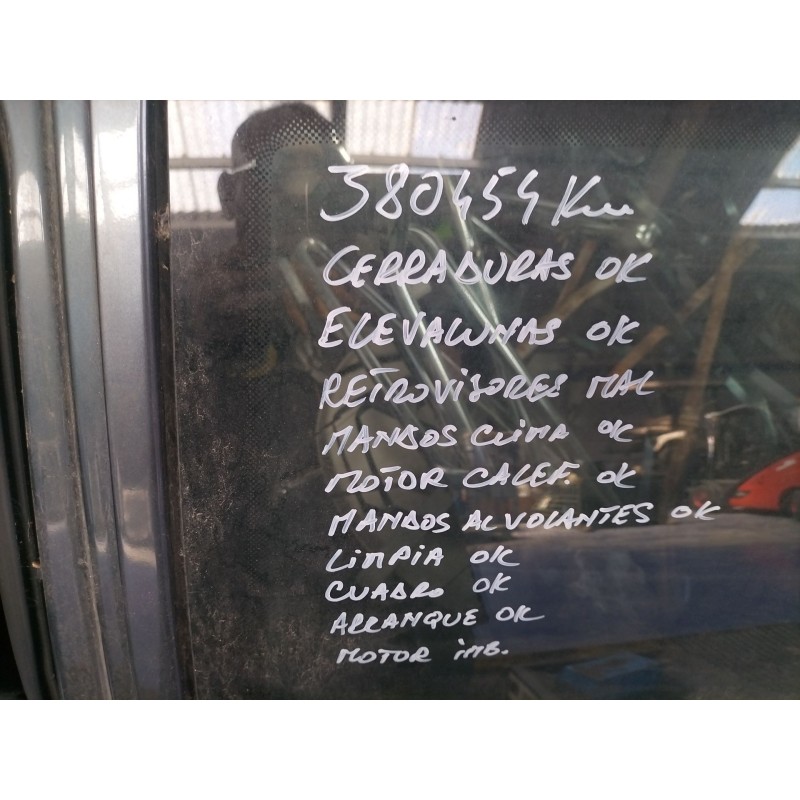 380454 Km
CERRADURAS OK
ELEVALUNAS OK
RETROVISORES MAL
MANDOS CLIMA OK
MOTOR CALEF. OK
MANDOS AL VOLANTES OK
LIMPIA OK
CUADRO OK
ARRANQUE OK
MOTOR imB.